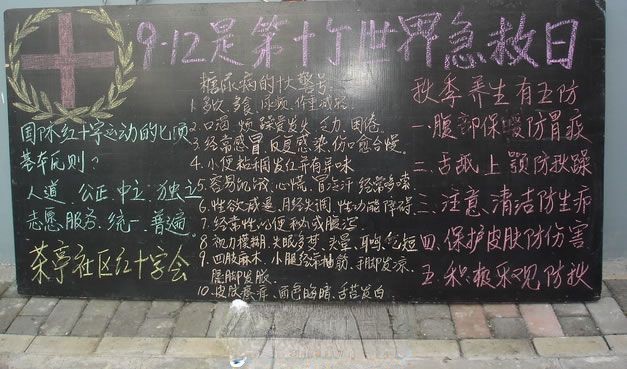 9.12是第十个世界急救日
国际红十字运动的七项
基本原则？
人道 公正 中立 独立
志愿服务 统一 普遍
茶亭社区红十字会
糖尿病的十大警号
1.多饮 多食 尿频 体重减轻
2.口渴 烦躁 发失 乏力 困倦
3.经常感冒 反复感染 伤口愈合慢
4.小便粘稠发红并有异味
5.容易饥饿 心慌 冒冷汗 经常哆嗦
6.性欲减退 月经失调 性功能障碍
7.经常性的便秘或腹泻
8.视力模糊 失眠多梦 头晕 耳鸣 气短
9.四肢麻木 小腿经常抽筋 手脚发凉
腿脚发胀
10.皮肤瘙痒 面色晦暗 舌苔发白
秋季养生有五防
一.腹部保暖防胃疾
二.舌舐上颚防秋躁
三.注意清洁防生疖
四.保护皮肤防伤害
五.积极乐观防秋